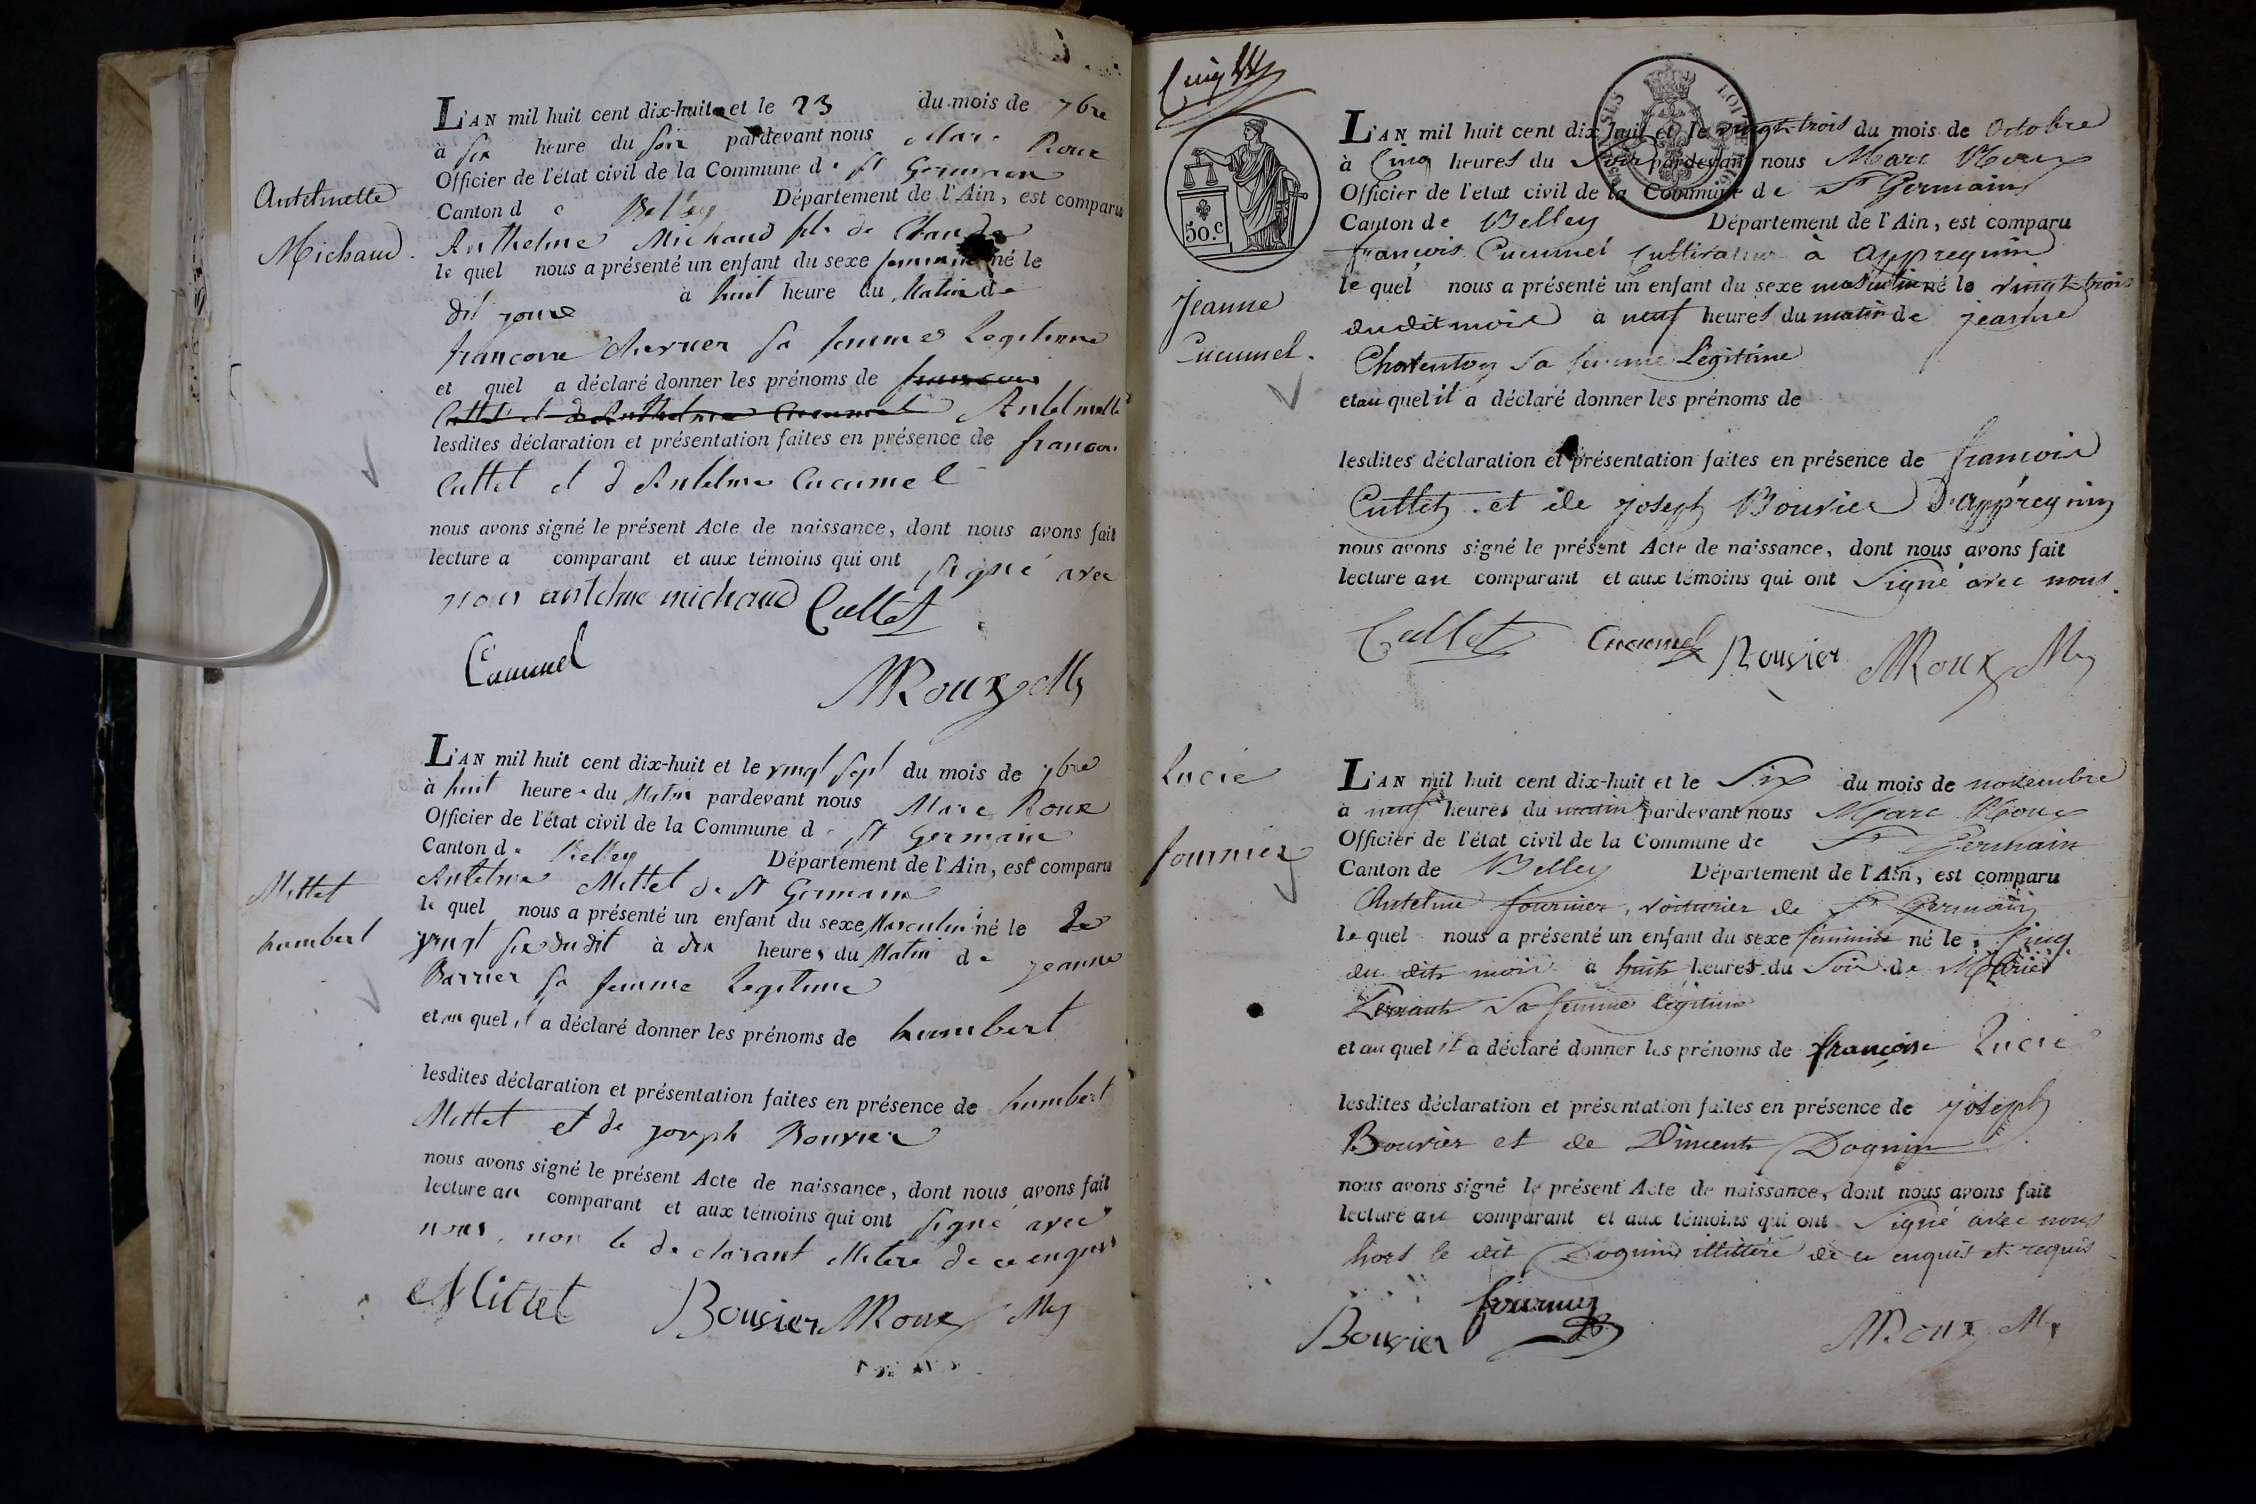 L'AN mil huit cent dix-huit et le 23 du mois de 7bre
à six heure du soir pardevant nous Marc Roux
Officier de l'état civil de la Commune de St Germain
Canton de Belley Département de l'Ain, est comparu
Antelmette
Michaud.
Anthelme Michaud fils de Claude
le quel nous a présenté un enfant du sexe feminin né le
à huit heure du Matin de
dit jour
francoise Chervier sa femme Legitime
et quel a déclaré donner les prénoms de francois
Cullet et d'Anthelme Cucumel Antelmette
lesdites déclaration et présentation faites en présence de francois
Cullet et d'Antelme Cucumel
nous avons signé le présent Acte de naissance, dont nous avons fait
lecture a comparant et aux témoins qui ont signé avec
nous antelme michaud Cullet
Cucumel
MRoux My
L'AN mil huit cent dix-huit et le vingt sept du mois de 7bre
à huit heure du Matin pardevant nous Marc Roux
Officier de l'état civil de la Commune de St Germain
Canton de Belley Département de l'Ain, est comparu
Mettet
humbert
Antelme Mettet de St Germain
le quel nous a présenté un enfant du sexe Masculin né le
vingt six du dit à dix heures du Matin de jeanne
Barrier sa femme Legitime
et au quel il a déclaré donner les prénoms de humbert
lesdites déclaration et présentation faites en présence de humbert
Mettet et de joseph Bouvier
nous avons signé le présent Acte de naissance, dont nous avons fait
lecture au comparant et aux témoins qui ont signé avec
nous, non le declarant illitere de ce enquis
Mittet Bouvier MRoux My
50.c
LOI DE 1816
L'AN mil huit cent dix-huit et le vingt-trois du mois de Octobre
à Cinq heures du Soir pardevant nous Marc Roux
Officier de l'état civil de la Commune de St Germain
Canton de Belley Département de l'Ain, est comparu
françois Cucumel Cultivateur à appregnin
Jeanne
Cucumel.
le quel nous a présenté un enfant du sexe masculin né le vingt-trois
du dit mois à neuf heures du matin de jeanne
Charenton Sa femme Légitime
et au quel il a déclaré donner les prénoms de
lesdites déclaration et présentation faites en présence de francois
Cullet et de joseph Bouvier D'appregnin
nous avons signé le présent Acte de naissance, dont nous avons fait
lecture au comparant et aux témoins qui ont Signé avec nous.
Cullet Cucumel Bouvier MRoux My
Lucie
fournier
L'AN mil huit cent dix-huit et le Six du mois de novembre
à neuf heures du matin pardevant nous Marc Roux
Officier de l'état civil de la Commune de St Germain
Canton de Belley Département de l'Ain, est comparu
Antelme fournier, voiturier de St Germain
le quel nous a présenté un enfant du sexe féminin né le Cinq
du dit mois à huit heures du Soir de Marie
Sa femme légitime
et au quel il a déclaré donner les prénoms de françoise Lucie
lesdites déclaration et présentation faites en présence de joseph
Bouvier et de Vincent Dognin
nous avons signé le présent Acte de naissance, dont nous avons fait
lecture au comparant et aux témoins qui ont Signé avec nous
hors le dit Dognin illittéré de ce enquis et requis
Bouvier fournier MRoux My